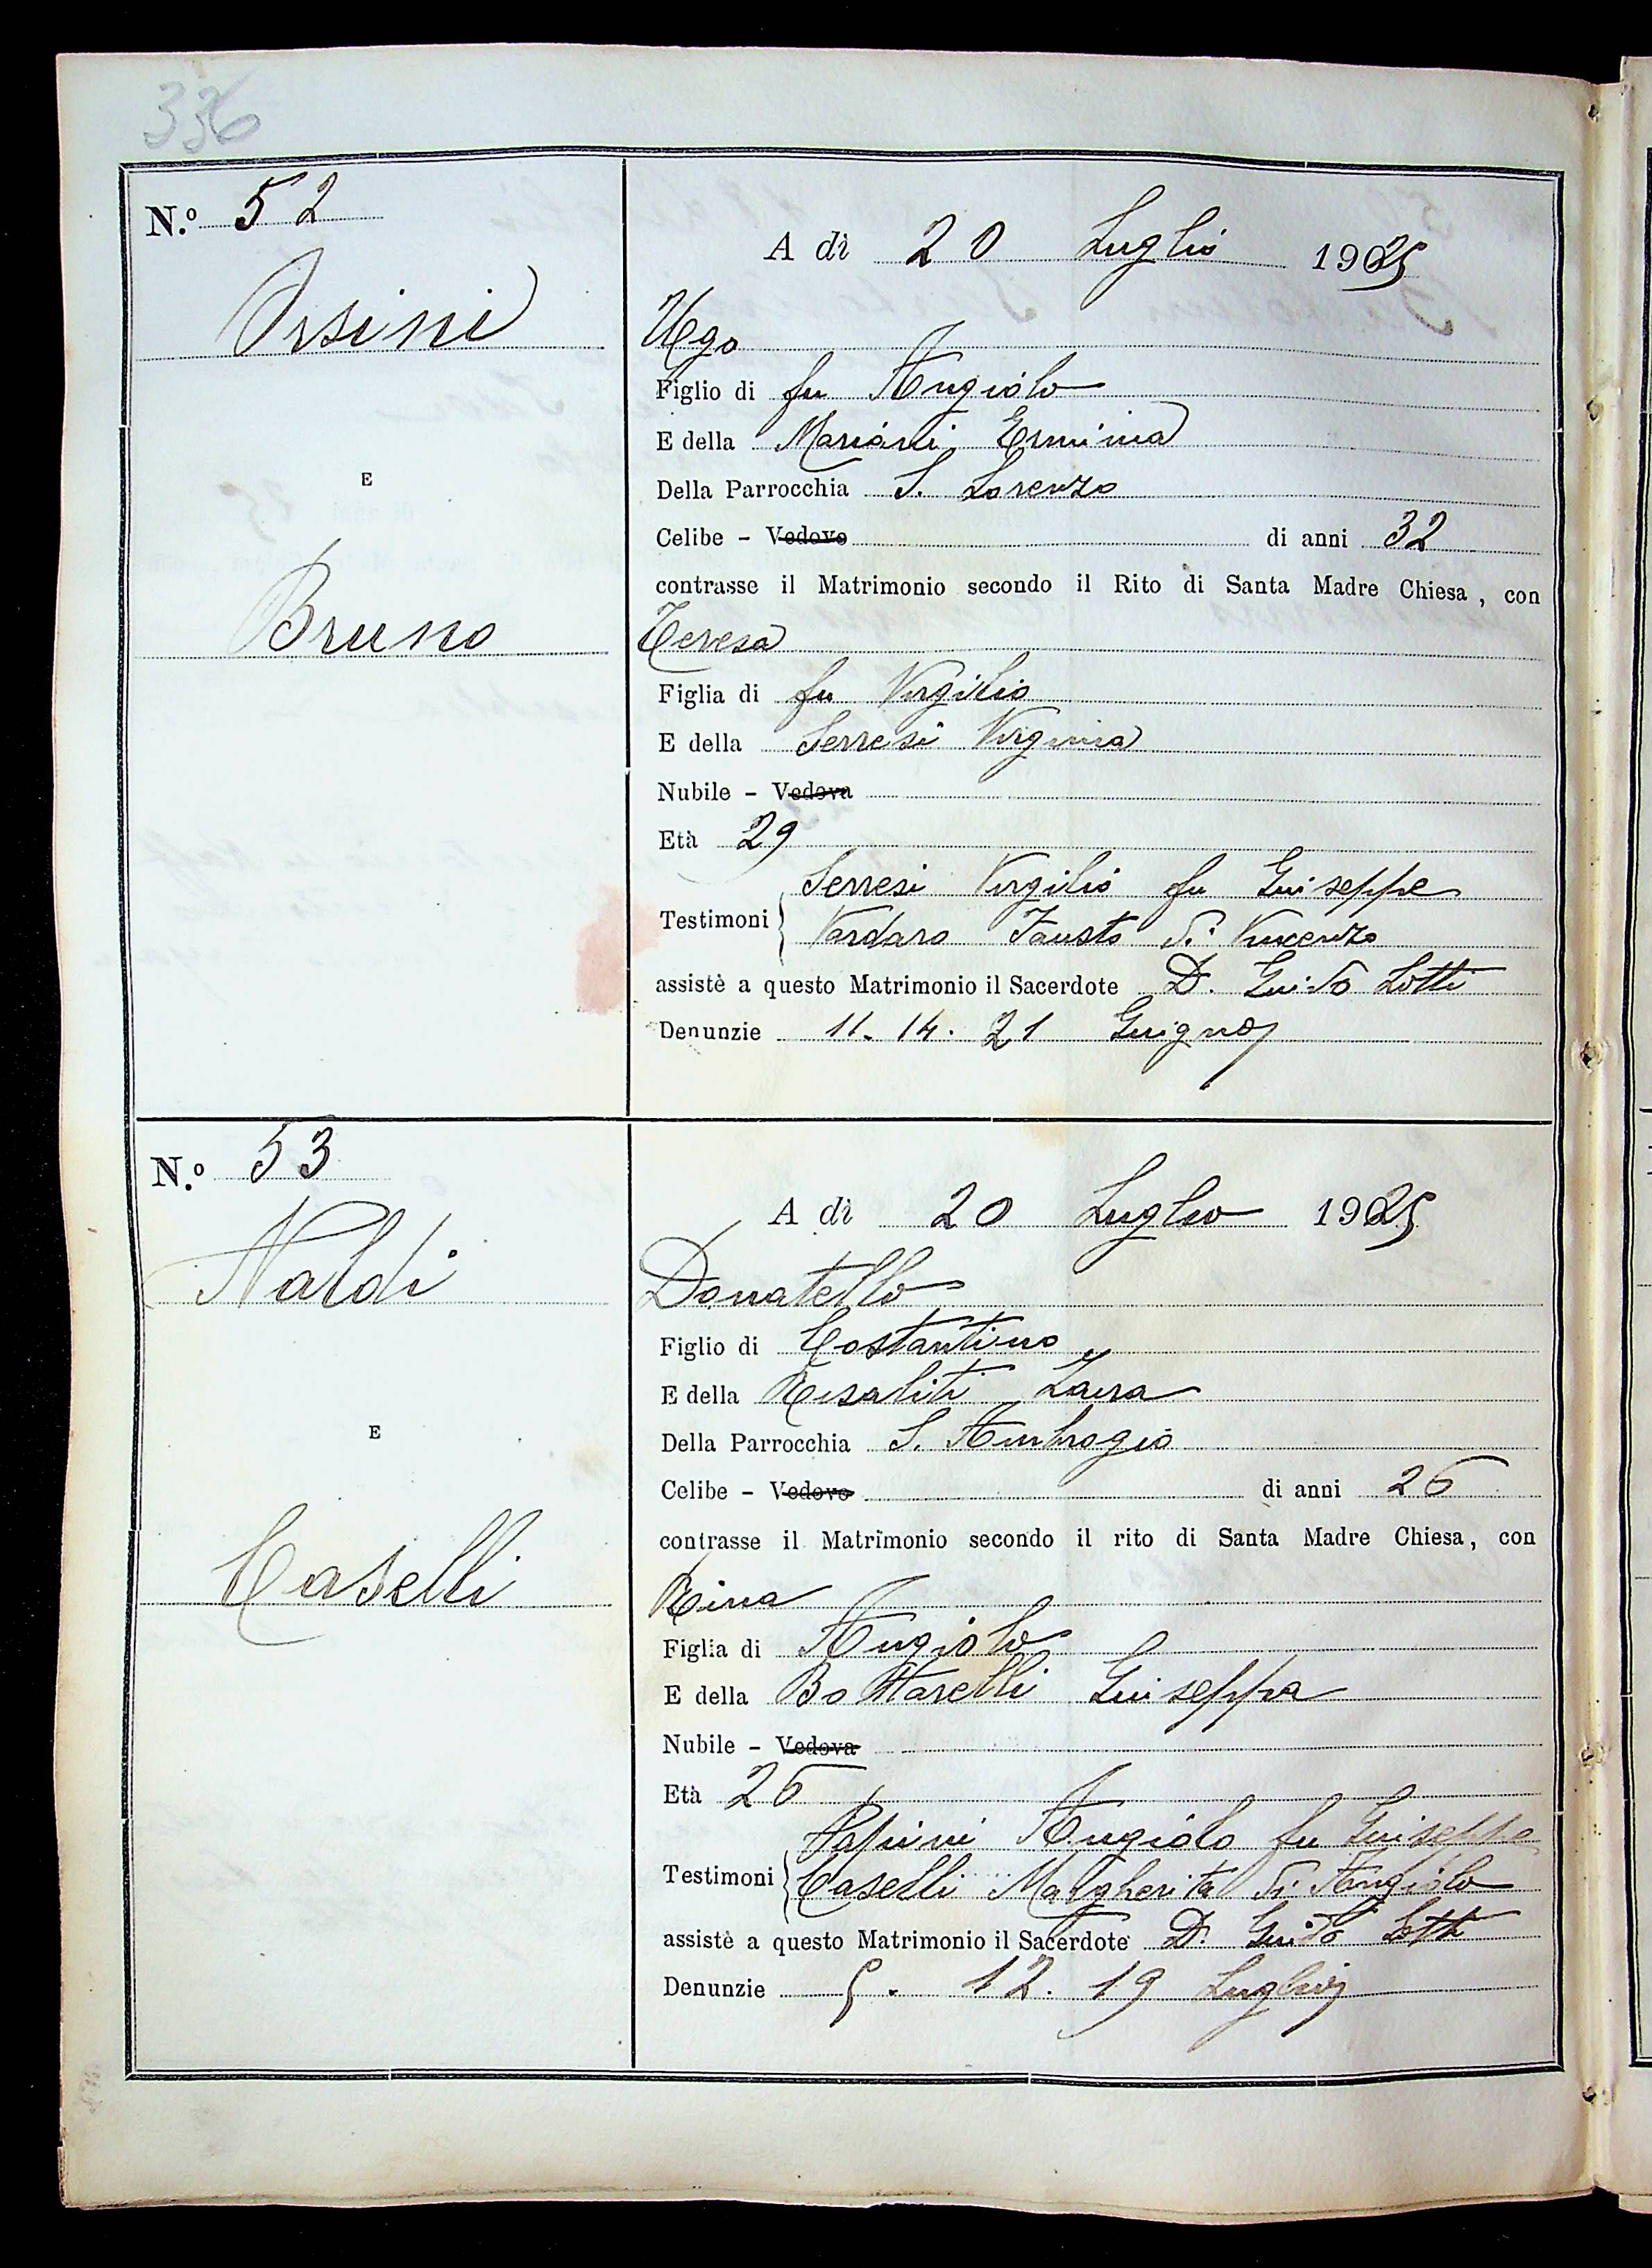 336
N.º 52
A dì 20 Luglio 1925
Orsini
Ugo
Figlio di fu Angiolo
E della Mariani Erminia
E
Della Parrocchia S. Lorenzo
Celibe - Vedovo di anni 32
contrasse il Matrimonio secondo il Rito di Santa Madre Chiesa, con
Bruno
Teresa
Figlia di fu Virgilio
E della Serresi Virginia
Nubile - Vedova
Età 29
Serresi Virgilio fu Giuseppe
Testimoni
Vardaro Fausto di Vincenzo
assistè a questo Matrimonio il Sacerdote D. Guido Lotti
Denunzie 11. 14. 21 Giugno
N.º 53
A dì 20 Luglio 1925
Naldi
Donatello
Figlio di Costantino
E della Risaliti Zaira
E
Della Parrocchia S. Ambrogio
Celibe - Vedovo di anni 26
contrasse il Matrimonio secondo il rito di Santa Madre Chiesa, con
Caselli
Rina
Figlia di Angiolo
E della Bottarelli Giuseppa
Nubile - Vedova
Età 26
Papini Angiolo fu Giuseppe
Testimoni
Caselli Margherita di Angiolo
assistè a questo Matrimonio il Sacerdote D. Guido Lotti
Denunzie 5. 12. 19 Luglio